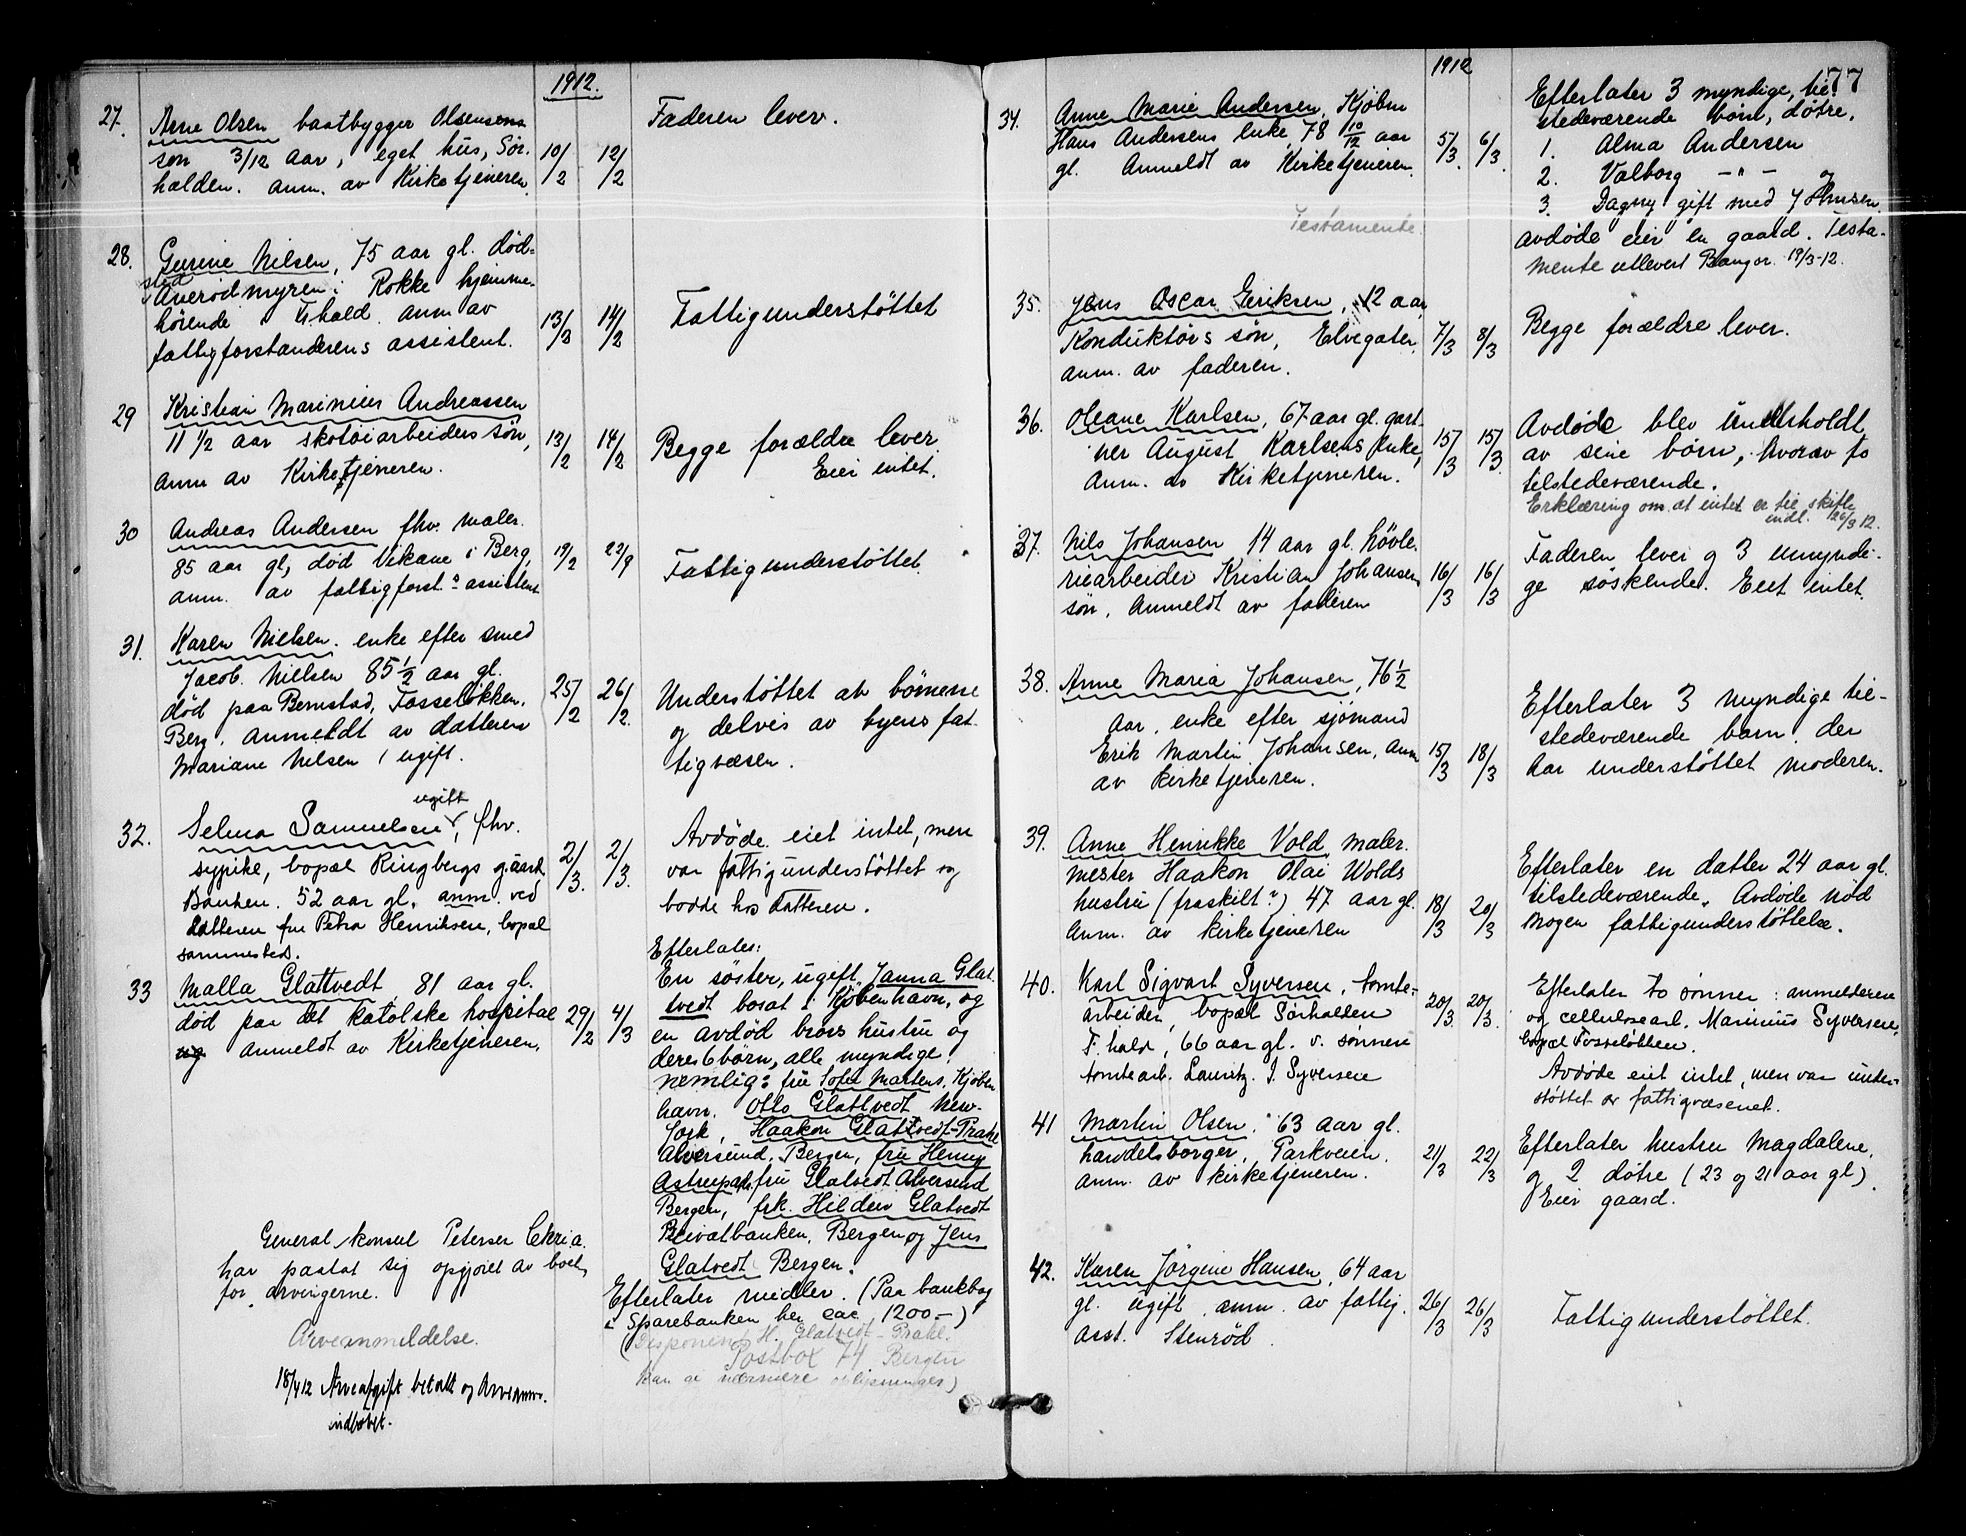 1912.
27. Arne Olsen baatbygger Olsensens
søn 3/12 aar, eget hus, Sør-
halden. anm. av Kirketjeneren.
10/2 12/2
Faderen lever.
28. Gurine Nilsen, 75 aar gl. død-
sted
Averødmyren i Rokke hjemme-
hørende i Fr.hald. anm av
fattigforstanderens assistent.
13/2 14/2
Fattigunderstøttet
29 Kristian Marinius Andreassen
11 1/2 aar skotøiarbeiders søn,
anm av Kirketjeneren.
13/2 14/2
Begge forældre lever.
Eier intet.
30 Andreas Andersen fhv. maler.
85 aar gl, død Vikane i Berg,
anm. av fattigforst.s assistent
19/2 22/2
Fattigunderstøttet.
31. Karen Nielsen. enke efter smed
Jacob Nielsen 85 1/2 aar gl.
død paa Bernstad, Fosseløkken.
Berg. anmeldt av datteren
Mariane Nilsen, ugift.
25/2 26/2
Understøttet av børnene
og delvis av byens fat-
tigvæsen.
ugift
32. Selma Samuelsen, fhv.
sypike, bopæl Ringbergs gaard,
Banken. 52 aar gl. anm. ved
datteren fru Petra Henriksen, bopæl
sammested.
2/3. 2/3.
Avdøde eiet intet, men
var fattigunderstøttet og
bodde hos datteren.
33 Malla Glattvedt, 81 aar gl.
død paa det katolske hospital
og anmeldt av Kirketjeneren.
29/2 4/3
Efterlater:
En søster, ugift, Janna Glat-
tvedt bosat i Kjøbenhavn, og
en avdød brors hustru og
deres 6 børn, alle myndige.
nemlig: fru Sofie Martens, Kjøben
havn. Otto Glattvedt New-
Jork, Haakon Glattvedt-Prahl
Alversund, Bergen, fru Henny
Astrup, fru Glatvedt Alversund
Bergen, frk. Hildur Glatvedt
Privatbanken, Bergen og Jens
Glatvedt Bergen.
Efterlater midler. (Paa bankbog
i Sparebanken her ca. 1200.-)
(Disponent H. Glatvedt-Prahl.
Postbox 74 Bergen
kan gi nærmere oplysninger)
General konsul Petersen Ckria.
har paatat sig opgjøret av boet,
for arvingerne.
Arveanmeldelse.
18/4 12 Arveafgift betalt og Arveanm.
1912
77
34. Anne Marie Andersen, Kjøbm
Hans Andersens enke, 78 10/12 aar
gl. Anmeldt av Kirketjeneren.
5/3. 6/3.
Testamente.
Efterlater 3 myndige, til
stedeværende børn, døtre.
1. Alma Andersen
2. Valborg -"-
3. Dagny gift med J Johnsen.
avdøde eier en gaard. Testa-
mente utlevert 19/3-12.
35. Jens Oscar Eriksen, 12 aar
Konduktørs søn, Elvegaten,
anm. av faderen.
7/3 8/3
Begge forældre lever.
36. Oleane Karlsen, 67 aar gl. gart-
ner August Karlsens enke,
Anm. av Kirketjeneren.
15/3 15/3.
Avdøde blev underholdt
av sine børn, hvorav to
tilstedeværende.
Erklæring om at intet er til skifte
indl. 26/3 12.
37. Nils Johansen 14 aar gl. høvle-
riarbeider Kristian Johansens
søn. Anmeldt av faderen
16/3 16/3
Faderen lever og 3 umyndi-
ge søskende. Eiet intet.
38. Anne Maria Johansen, 76 1/2
aar, enke efter sjømand
Erik Martin Johansen, anm
av kirketjeneren.
15/3 18/3
Efterlater 3 myndige til-
stedeværende barn. der
har understøttet moderen.
39. Anne Henrikke Vold maler-
mester Haakon Olai Wolds
hustru (fraskilt?) 47 aar gl.
anm. av kirketjeneren
18/3 20/3
Efterlater en datter 24 aar gl.
tilstedeværende. Avdøde nød
nogen fattigunderstøttelse.
40. Karl Sigvart Syversen, tomte-
arbeider, bopæl Sørhalden
F. hald, 66 aar gl. v. sønnen
tomtearb. Lauritz. S. Syversen
20/3. 20/3.
Efterlater to sønner: anmelderen
og cellulosearb. Marinius Syversen,
bopæl Fosseløkken.
Avdøde eiet intet, men var under-
støttet av fattigvæsenet.
41 Martin Olsen. 63 aar gl.
handelsborger, Parkveien.
anm. av kirketjeneren.
21/3 22/3
Efterlater hustru Magdalene,
og 2 døtre (23 og 21 aar gl).
Eier gaard.
42. Karen Jørgine Hansen, 64 aar
gl. ugift anm. av fattig.
asst. Stenrød.
26/3 26/3
Fattigunderstøttet.